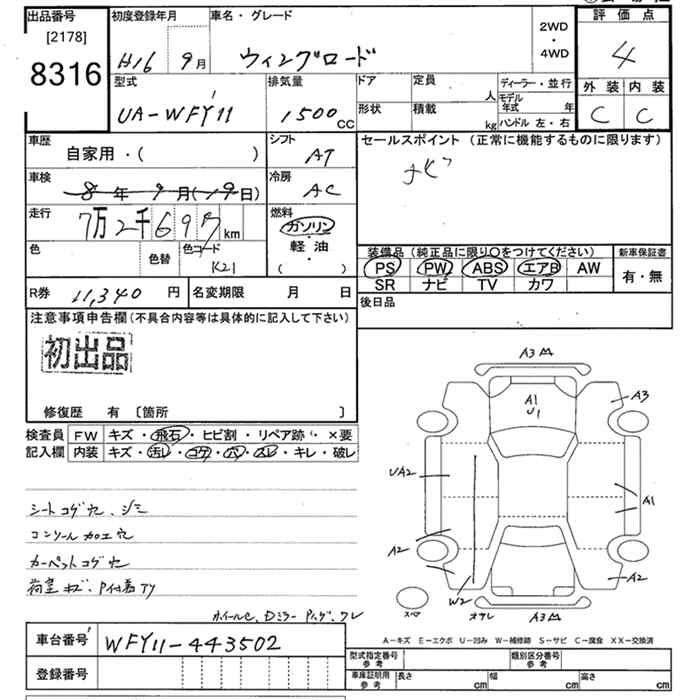 出品番号
[2178]
8316
初度登録年月
H16 9月
車名・グレード
ウィングロード
2WD
・
4WD
評価点
4
外装 内装
C C
型式
UA-WFY11
排気量
1500cc
ドア
定員
人
形状
積載
kg
ディーラー・並行
モデル年式 年
ハンドル 左・右
車歴
自家用・( )
シフト
AT
セールスポイント (正常に機能するものに限ります)
ナビ
車検
8年9月(19日)
冷房
AC
走行
7万2千69 km
燃料
ガソリン
・
軽・油
( )
色
色替
色コード
K21
装備品(純正品に限り○をつけてください)
PS PW ABS エアB AW
SR ナビ TV カワ
新車保証書
有・無
R券 11,340円
名変期限 月 日
後日品
注意事項申告欄(不具合内容等は具体的に記入して下さい)
初出品
修復歴 有 〔箇所 〕
検査員記入欄
FW キズ・飛石・ヒビ割・リペア跡・×要
内装 キズ・汚レ・コゲ・穴・スレ・キレ・破レ
シートコゲ穴、シミ
コンソール加工穴
カーペットコゲ穴
荷室キズ、
A3
A1
U1
A3
UA2
A1
A2
W2
A2
スペア
A3
A-キズ E-エクボ U-凹み W-補修跡 S-サビ C-腐食 XX-交換済
車台番号
WFY11-443502
登録番号
型式指定番号
参考
類別区分番号
参考
車庫証明用
参考
長さ cm
幅 cm
高さ cm